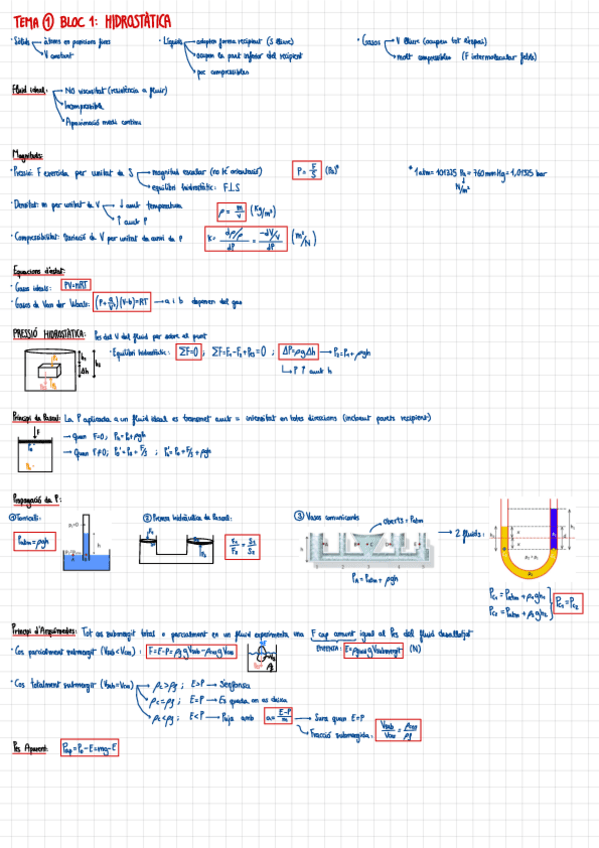 TEMA ① BLOC 1: HIDROSTÀTICA
· Sòlids → àtoms en posicions fixes
→ V constant
· Líquids → adopten forma recipient (S lliure)
→ ocupen la part inferior del recipient
→ poc compressibles
· Gasos → V lliure (ocupen tot l'espai)
→ molt compressibles (F intermolecular febles)
Fluid ideal: → NO viscositat (resistència a fluir)
→ Incompressible
→ Aproximació medi continu
Magnituds:
· Pressió: F exercida per unitat de S → magnitud escalar (no té orientació)
→ equilibri hidrostàtic: F⊥S
P = F/S (Pa)*
* 1 atm = 101325 Pa = 760 mmHg = 1,01325 bar
N/m²
· Densitat: m per unitat de V → ↓ amb temperatura
→ ↑ amb P
ρ = m/V (Kg/m³)
· Compressibilitat: Variació de V per unitat de canvi de P
K = (dρ/ρ)/dP = (-dV/V)/dP (m²/N)
Equacions d'estat:
· Gasos ideals: PV=nRT
· Gasos de Van der Waals: (V-b)=RT → a i b depenen del gas
PRESSIÓ HIDROSTÀTICA: Pes del V del fluid per sobre el punt
· Equilibri hidrostàtic: ΣF=0 ; ; ΔP=ρgΔh → P₂=P₁+ρgh
↳ P ↑ amb h
Principi de Pascal: La P aplicada a un fluid ideal es transmet amb = intensitat en totes direccions (incloent parets recipient)
F
→ Quan F=0;
→ Quan F≠0;
Propagació de P:
① Torricelli:
Patm = ρgh
② Premsa hidràulica de Pascal:
F₁/F₂ = S₁/S₂
③ Vasos comunicants
oberts = Patm
→ 2 fluids:
1 2 3 4
PA = Patm + ρgh
Pc₁ = Patm + ρ₁gh₁
Pc₂ = Patm + ρ₂gh₂
Pc₁ = Pc₂
Principi d'Arquímedes: Tot cos submergit total o parcialment en un fluid experimenta una F cap amunt igual al Pes del fluid desallotjat
· Cos parcialment submergit (Vsub<Vcos) :
EMPENTA: (N)
· Cos totalment submergit (Vsub=Vcos) → ρc>ρf ;
→ ρc=ρf ; E=P → Es queda on es deixa
→ ρc<ρf ; → Puja amb a = (E-P)/m → Sura quan E=P
→ Fracció submergida: Vsub/Vcos = ρcos/ρf
Pes Aparent: = mg-E